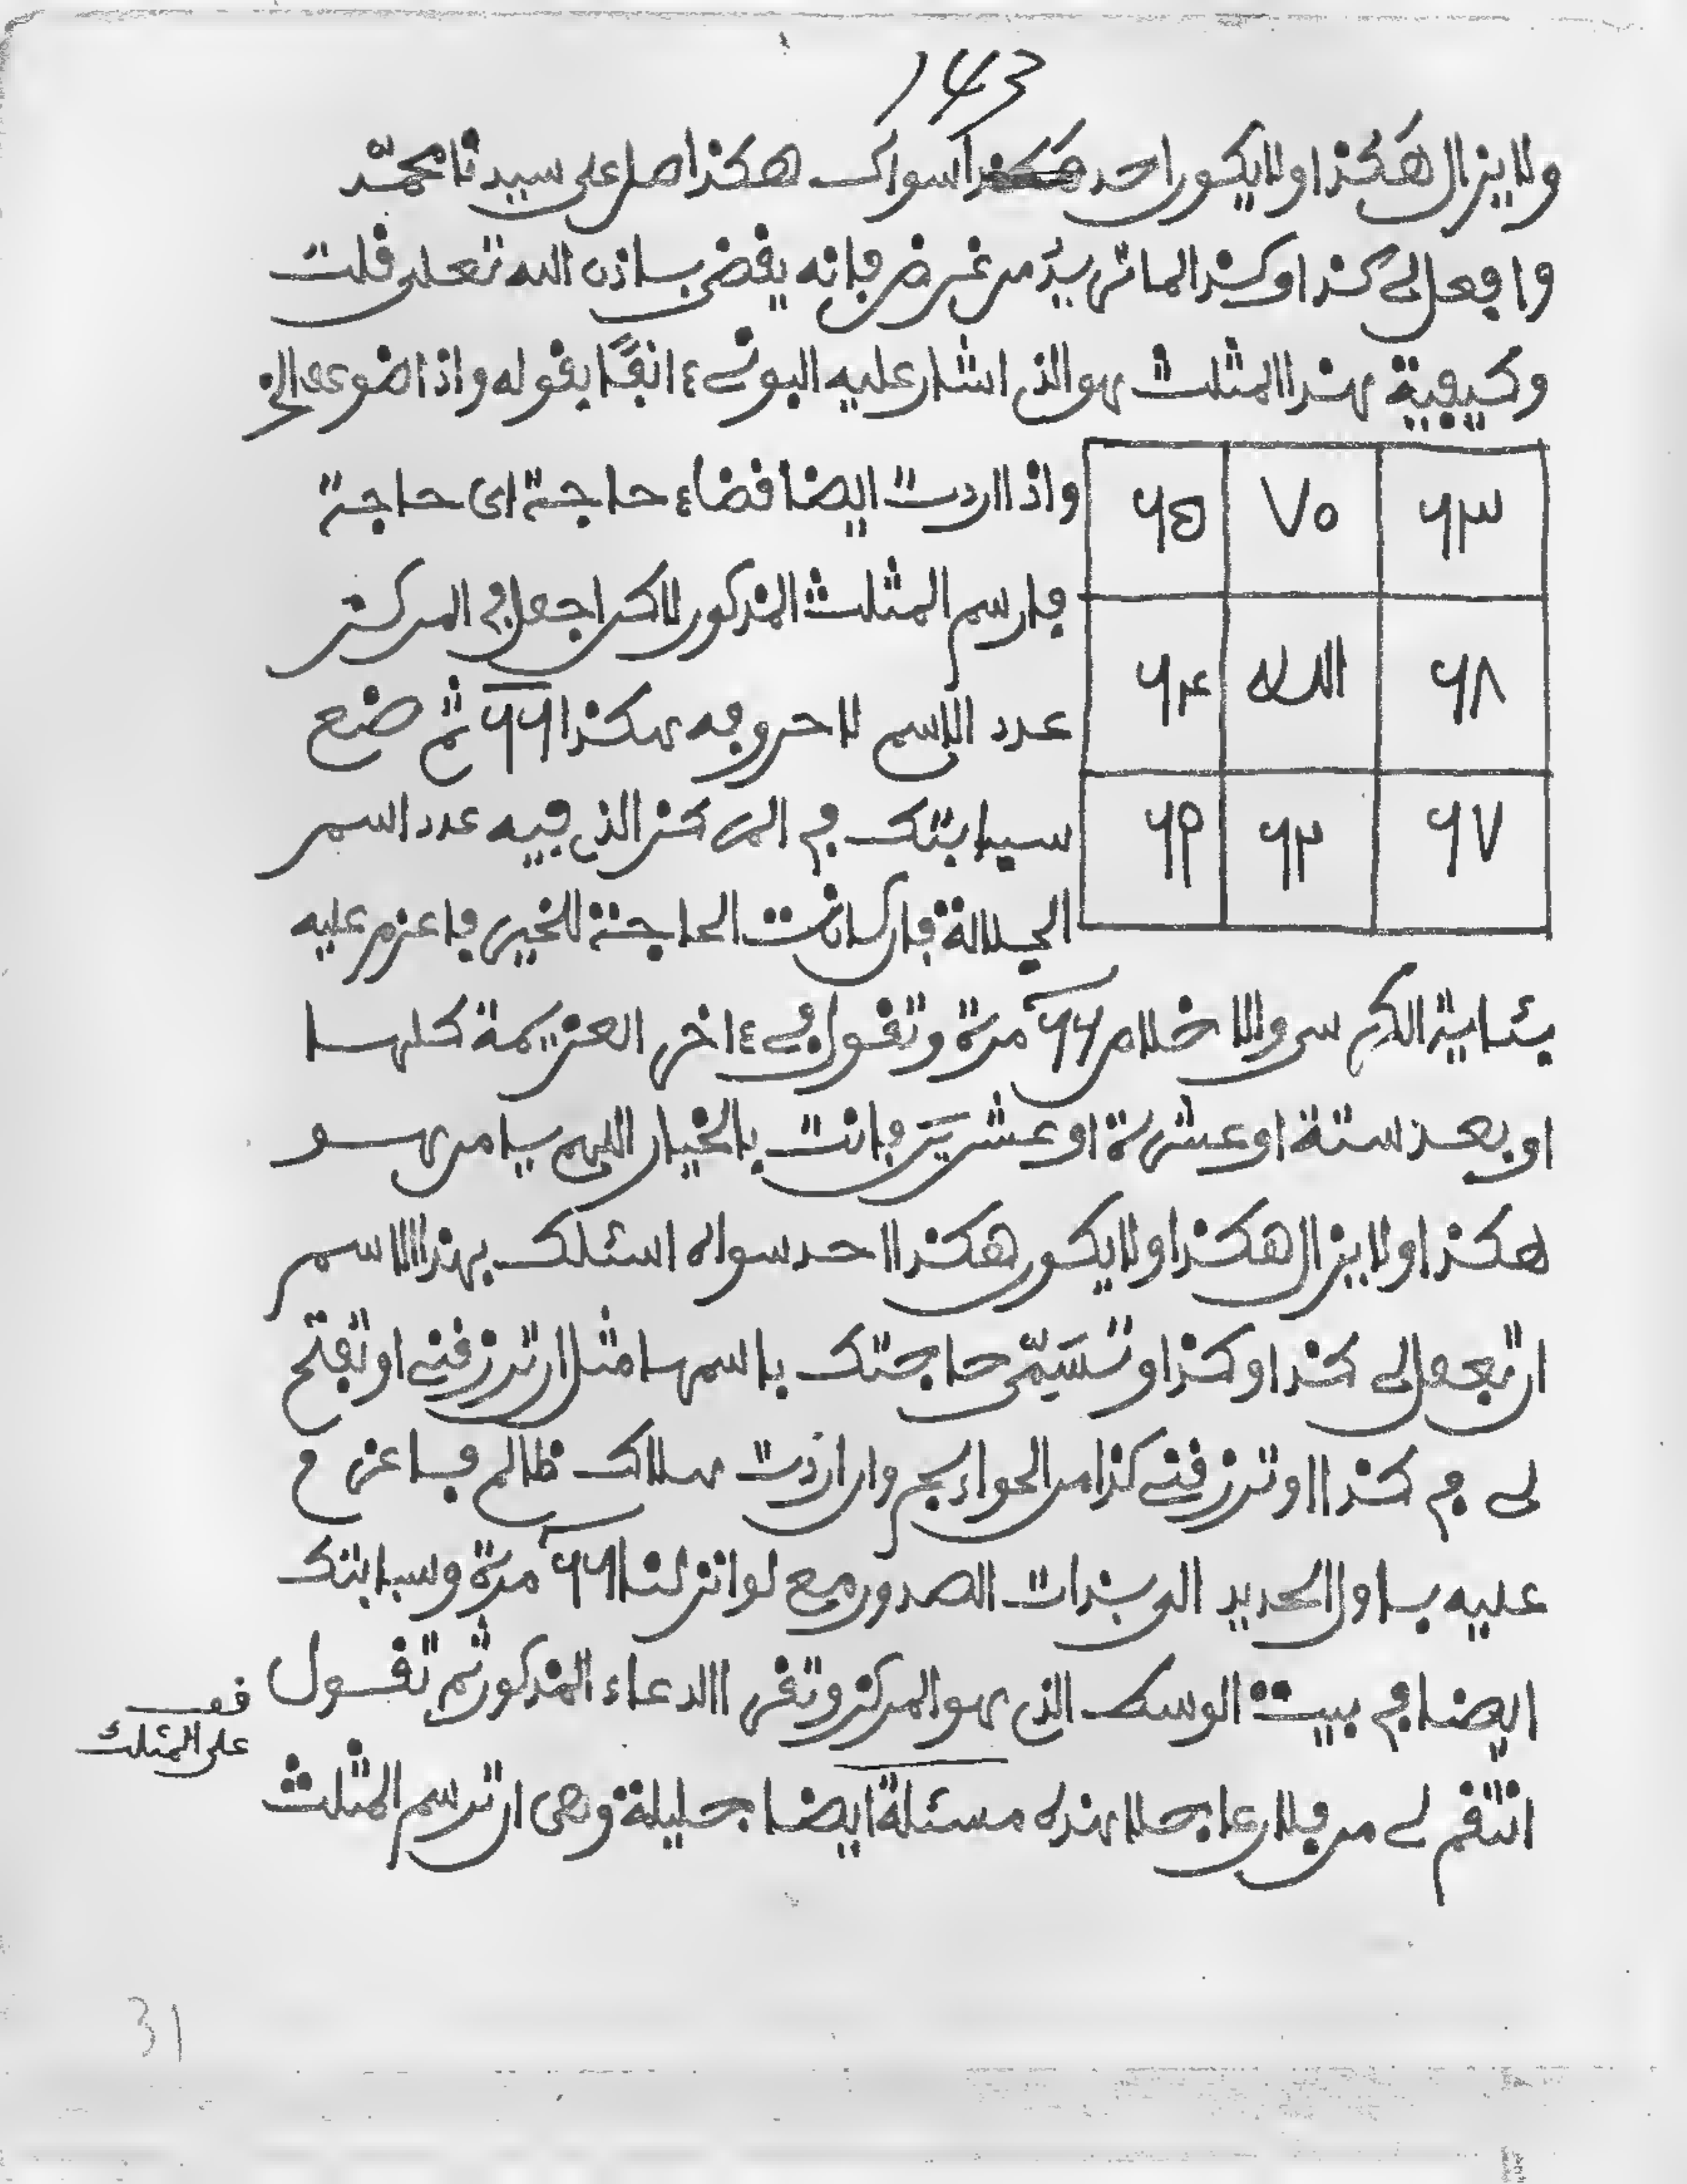 143
ولا يزال هكذا ولا يكون احد هكذا سواك هكذا صل على سيدنا محمّد
وافعل لي كذا وكذا لما تريد من غرض فإنه يقضى باذن الله تعلى قلت
وكيفية هذا المثلث هو الذي اشار عليه البوني ءانفًا بقوله واذا ضوعف الخ
واذا اردت ايضا قضاء حاجة اي حاجة
٦٥ ٧٠ ٦٣
فارسم المثلث المذكور لاكن اجعل في المركز
٦٤ الله ٦٨
عدد الاسم لا حروفه هكذا ٦٦ ثم ضع
سبابتك في المركز الذي فيه عدد اسم
٦٩ ٦٢ ٦٧
الجلالة فإن كانت الحاجة للخير فاعزم عليه
بئاية الكرسي والاخلاص ٦٦ مرة وتقول في ءاخر العزيمة كلها
او بعد ستة او عشرة او عشرين فانت بالخيار اللهم يا من هو
هكذا ولا يزال هكذا ولا يكون هكذا احد سواه اسئلك بهذا الاسم
ان تفعل لي كذا وكذا وتسَمّي حاجتك باسمها مثل ان ترزقني او تفتح
لي في كذا او ترزقني كذا من الحوايج وان اردت هلاك ظالم فاعزم
عليه باول الحديد الى بذات الصدور مع لو انزلنا ٦٦ مرة وسبابتك
ايضا في بيت الوسط الذي هو المركز وتقرا الدعاء المذكور ثم تقول
قف
على المثلث
انتقم لي من فلان عاجلا هذه مسئلة ايضا جليلة وهي ان ترسم المثلث
31